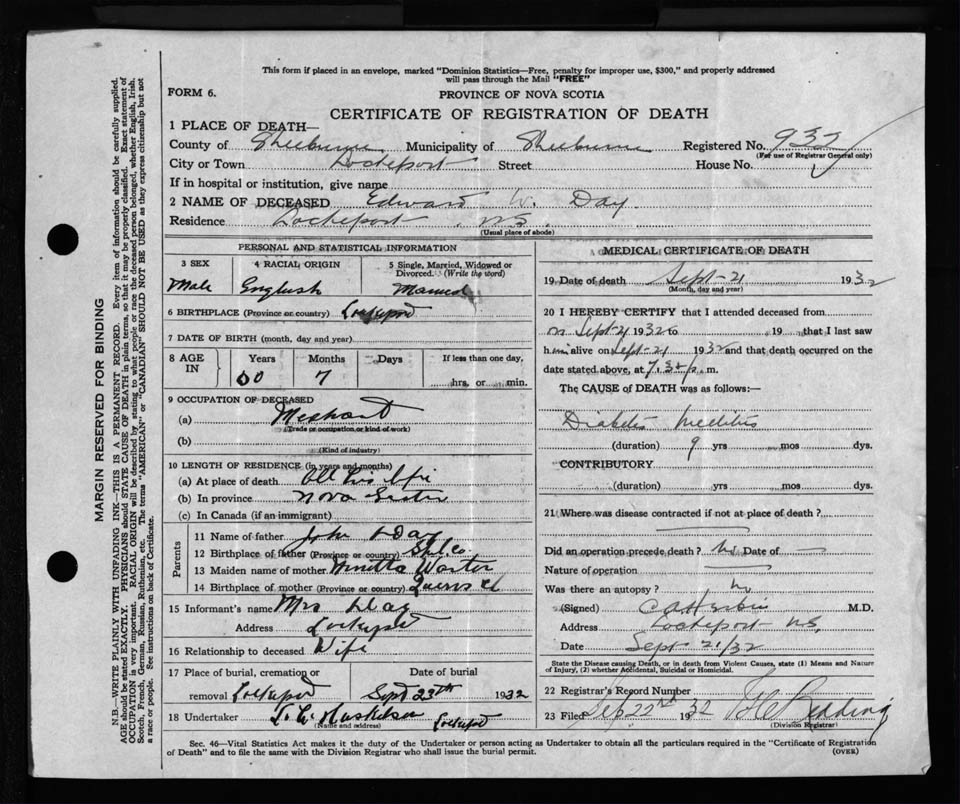 This form if placed in an envelope, marked "Dominion Statistics—Free, penalty for improper use, $300," and properly addressed
will pass through the Mail "FREE"
FORM 6.
PROVINCE OF NOVA SCOTIA
CERTIFICATE OF REGISTRATION OF DEATH
1 PLACE OF DEATH—
County of Shelburne Municipality of Shelburne Registered No. 932
(For use of Registrar General only)
City or Town Lockeport Street House No.
If in hospital or institution, give name
2 NAME OF DECEASED Edward W. Day
Residence Lockeport N.S.
(Usual place of abode)
PERSONAL AND STATISTICAL INFORMATION
3 SEX
Male
4 RACIAL ORIGIN
English
5 Single, Married, Widowed or
Divorced. (Write the word)
Married
6 BIRTHPLACE (Province or country) Lockeport
7 DATE OF BIRTH (month, day and year)
8 AGE IN Years Months Days If less than one day,
7 hrs. or min.
9 OCCUPATION OF DECEASED
(a) Merchant
(Trade or occupation, or kind of work)
(b)
(Kind of industry)
10 LENGTH OF RESIDENCE (in years and months)
(a) At place of death All his life
(b) In province Nova Scotia
(c) In Canada (if an immigrant)
Parents
11 Name of father John Day
12 Birthplace of father (Province or country) Shel Co
13 Maiden name of mother
14 Birthplace of mother (Province or country) Queens
15 Informant's name Mrs Day
Address Lockeport
16 Relationship to deceased Wife
17 Place of burial, cremation or
removal Lockeport
Date of burial
Sept 23th 1932
18 Undertaker Lockeport
(Name and address)
MEDICAL CERTIFICATE OF DEATH
19 Date of death Sept-21 1932
(Month, day and year)
20 I HEREBY CERTIFY that I attended deceased from
on Sept 21 1932 to 19 that I last saw
him alive on Sept-21 1932 and that death occurred on the
date stated above, at p.m.
The CAUSE of DEATH was as follows:—
Diabetes Mellitis
(duration) 9 yrs mos dys.
CONTRIBUTORY
(duration) yrs mos dys.
21 Where was disease contracted if not at place of death?
Did an operation precede death? No Date of —
Nature of operation —
Was there an autopsy?
(Signed) M.D.
Address Lockeport N.S.
Date Sept 21/32
State the Disease causing Death, or in death from Violent Causes, state (1) Means and Nature
of Injury, (2) whether Accidental, Suicidal or Homicidal.
22 Registrar's Record Number
23 Filed Sep 22nd 1932
(Division Registrar)
Sec. 46—Vital Statistics Act makes it the duty of the Undertaker or person acting as Undertaker to obtain all the particulars required in the "Certificate of Registration
of Death" and to file the same with the Division Registrar who shall issue the burial permit.
(OVER)
MARGIN RESERVED FOR BINDING
N.B.—WRITE PLAINLY WITH UNFADING INK—THIS IS A PERMANENT RECORD. Every item of information should be carefully supplied.
AGE should be stated EXACTLY. PHYSICIANS should STATE CAUSE OF DEATH in plain terms, so that it may be properly classified. Exact statement of
OCCUPATION is very important. RACIAL ORIGIN will be described by stating to what people or race the deceased person belonged, whether English, Irish,
Scotch, French, German, Russian, Ruthenian, etc. The terms "AMERICAN" or "CANADIAN" SHOULD NOT BE USED as they express citizenship but not
a race or people. See instructions on back of Certificate.